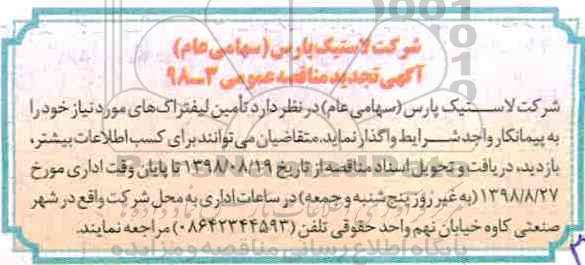 شرکت لاستیک پارس (سهامی عام)
آگهی تجدید مناقصه عمومی ۳-۹۸
شرکت لاستیک پارس (سهامی عام) در نظر دارد تأمین لیفتراک‌های مورد نیاز خود را
به پیمانکار واجد شرایط واگذار نماید. متقاضیان می‌توانند برای کسب اطلاعات بیشتر،
بازدید، دریافت و تحویل اسناد مناقصه از تاریخ ۱۳۹۸/۰۸/۱۹ تا پایان وقت اداری مورخ
۱۳۹۸/۸/۲۷ (به غیر روز پنج‌شنبه و جمعه) در ساعات اداری به محل شرکت واقع در شهر
صنعتی کاوه خیابان نهم واحد حقوقی تلفن (۰۸۶۴۲۳۴۴۵۹۳) مراجعه نمایند.
پایگاه اطلاع رسانی مناقصه و مزایده